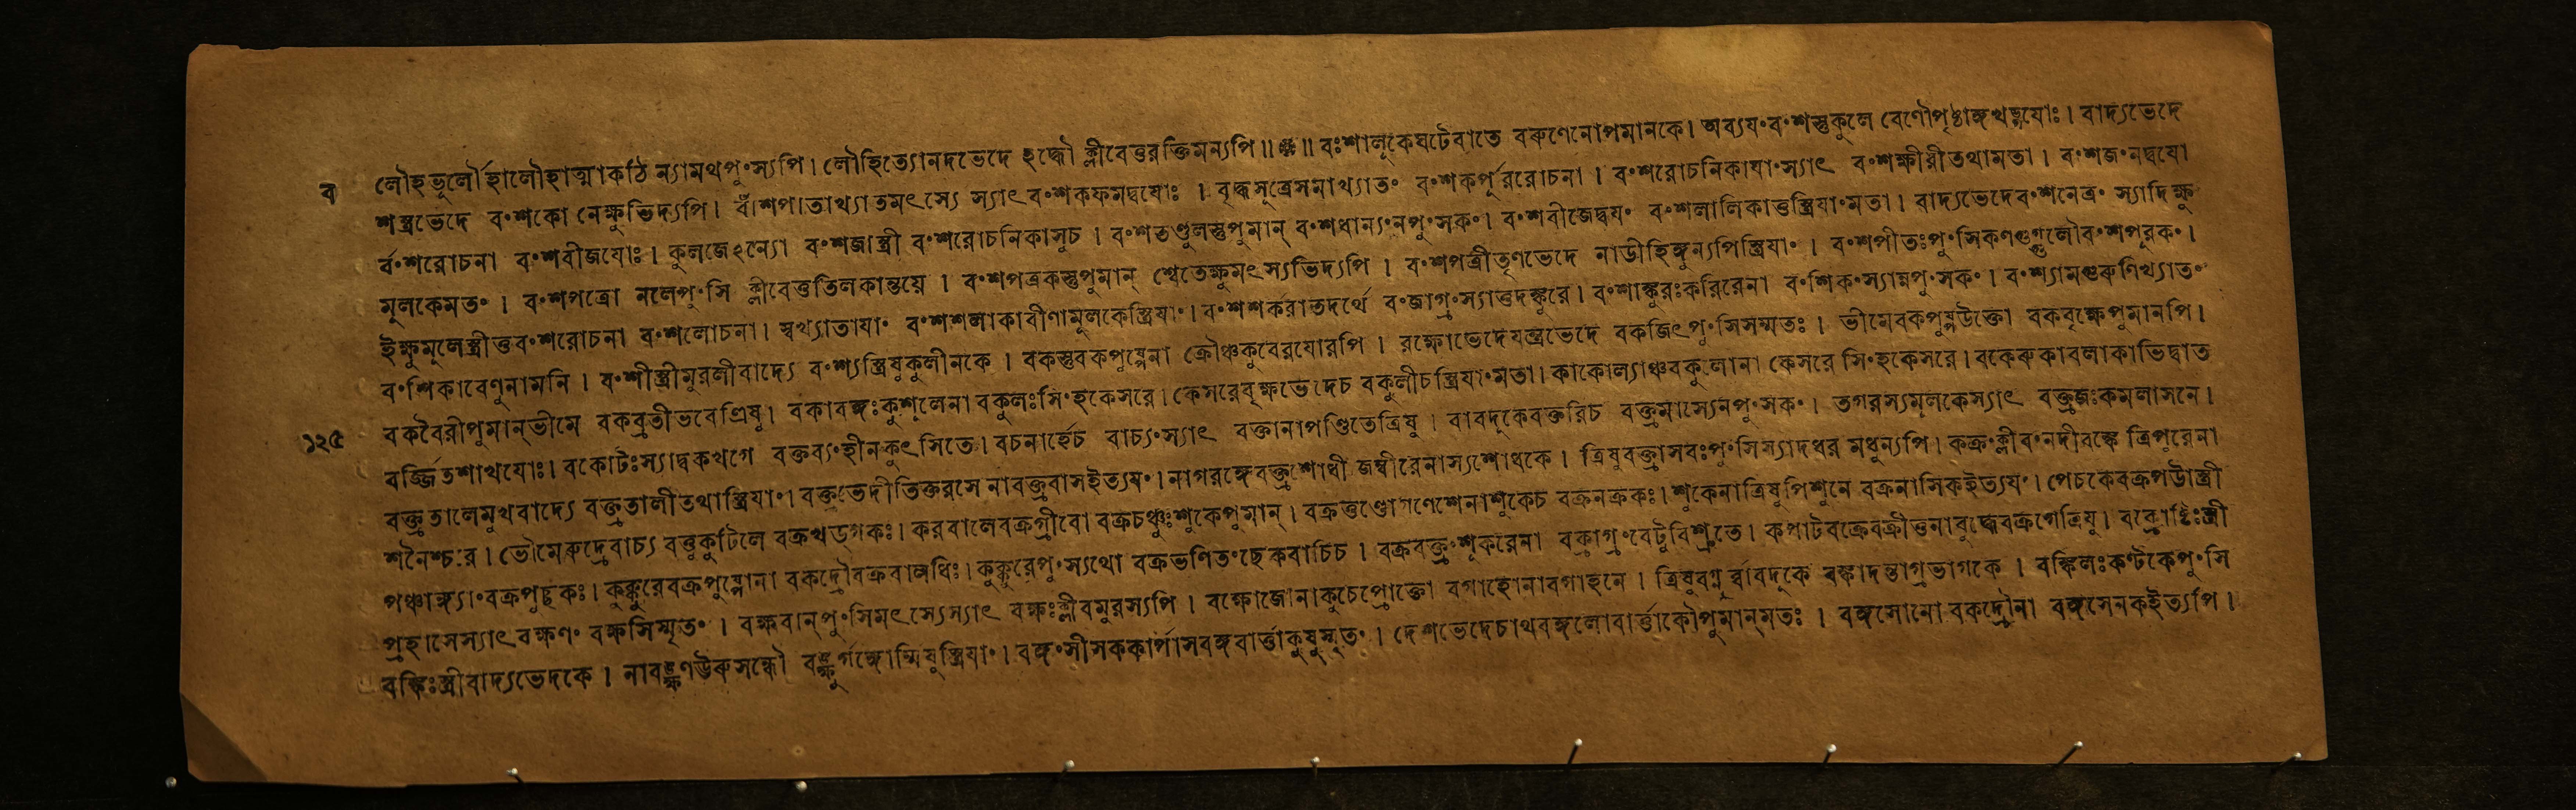 ব
লৌহভূলৌর্হালৌহাত্মাকঠি ন্যামথপু৹স্যপি। লৌহিত্যোনদভেদে হব্ধৌ ক্লীবেত্তরক্তিমন্যপি॥ ॥ বঃশালূকেষটেবাতে বৰুণেনোপমানকে। অব্যয৹ব৹শস্তুকুলে বেণৌপৃষ্ঠাঙ্গখড়্গযোঃ। বাদ্যভেদে
শস্ত্রভেদে ব৹শকো নেক্ষুভিদ্যপি। বাঁশপাতাখ্যাতমৎস্যে স্যাৎব৹শকফমদ্বযোঃ । বৃদ্ধসূত্রেসমাখ্যাত৹ ব৹শকর্পূররোচনা। ব৹শরোচনিকাযা৹স্যাৎ ব৹শক্ষীরীতথামতা। ব৹শজ৹নদ্বযো
র্ব৹শরোচনা ব৹শবীজযোঃ। কুলজেঽন্যো ব৹শজাস্ত্রী ব৹শরোচনিকাসুচ । ব৹শতণ্ডুলস্তুপুমান্ ব৹শধান্য৹নপু৹সক৹। ব৹শবীজেদ্বয৹ ব৹শলালিকাত্তস্ত্রিযা৹মতা। বাদ্যভেদেব৹শনেত্র৹ স্যাদিক্ষু
মূলকেমত৹ । ব৹শপত্রো নলেপু৹সি ক্লীবেত্ততিলকান্তয়ে । ব৹শপত্রকস্তুপুমান্ শ্বেতেক্ষুমৎস্যভিদ্যপি । ব৹শপত্রীতৃণভেদে নাডীহিঙ্গুন্যপিস্ত্রিযা৹ । ব৹শপীতঃপু৹সিকণগুগ্গুলৌব৹শপূরক৹।
ইক্ষুমূলেস্ত্রীত্তব৹শরোচনা ব৹শলোচনা। স্বখ্যাতাযা৹ ব৹শশলাকাবীণামূলকেস্ত্রিযা৹। ব৹শশর্করাতদর্থে ব৹জাগ্র৹স্যাত্তদঙ্কুরে। ব৹শাঙ্কুরঃকরিরেনা ব৹শিক৹স্যান্নপু৹সক৹। ব৹শ্যামগুৰুণিখ্যাত৹
ব৹শিকাবেণুনামনি । ব৹শীস্ত্রীমুরলীবাদ্যে ব৹শ্যস্ত্রিষুকুলীনকে । বকস্তুবকপুষ্পেনা ক্রৌঞ্চকুবেরযোরপি । রক্ষোভেদেযন্ত্রভেদে বকজিৎপু৹সিসম্মতঃ । ভীমেবকপুষ্পউক্তো বকবৃক্ষেপুমানপি।
১২৫
বকবৈরীপুমান্ভীমে বকব্রতীভবেত্ত্রিষু। বকাবঙ্গঃকুশূলেনা বকুলঃসি৹হকেসরে। কেসরেবৃক্ষভেদেচ বকুলীচস্ত্রিযা৹মতা। কাকোল্যাঞ্চবকুলোনা কেসরে সি৹হকেসরে। বকেৰুকাবলাকাভিদ্বাত
বর্জ্জিতশাখযোঃ। বকোটঃস্যাদ্বকখগে বক্তব্য৹হীনকুৎসিতে। বচনার্হেচ বাচ্য৹স্যাৎ বক্তানাপণ্ডিতেত্রিষু । বাবদূকেবক্তরিচ বক্ত্রমাস্যেনপু৹সক৹। তগরস্যমূলকেস্যাৎ বক্ত্রজঃকমলাসনে।
বক্ত্রতালেমুখবাদ্যে বক্ত্রতালীতথাস্ত্রিযা৹। বক্ত্রভেদীতিক্তরসে নাবক্ত্রবাসইত্যয৹। নাগরঙ্গেবক্ত্রশোধী জম্বীরেনাস্যশোধকে । ত্রিষুবক্ত্রাসবঃপু৹সিস্যাদধর মধুন্যপি। কক্র৹ক্লীব৹নদীবঙ্কে ত্রিপুরেনা
শনৈশ্চরে। ভৌমেৰুদ্রেবাচ্য বত্তুকুটিলে বক্রখড্গকঃ। করবালেবক্রগ্রীবো বক্রচঞ্চুঃশুকেপুমান্। বক্রত্তণ্ডোগণেশেনাশুকেচ বক্রনক্রকঃ। শুকেনাত্রিষুপিশুনে বক্রনাসিকইত্যয৹। পেচকেবক্রপউাস্ত্রী
পঞ্চাঙ্গ্যা৹বক্রপুচ্ছকঃ। কুক্কুরেবক্রপুষ্পোনা বকদ্রৌবক্রবালধিঃ। কুক্কুরেপু৹স্যথো বক্রভণিত৹ছেকবাচিচ । বক্রবক্ত্র৹শূকরেনা বক্রাগ্র৹বেটুবিশ্রুতে। কপাটবক্রেবক্রীত্তনাবুদ্ধেবক্রগেত্রিষু। বক্রোষ্ঠিঃস্ত্রী
প্রহাসেস্যাৎবক্ষণ৹ বক্ষসিস্মৃত৹ । বক্ষবান্পু৹সিমৎস্যেস্যাৎ বক্ষঃক্লীবমুরস্যপি । বক্ষোজোনাকুচেপ্রোক্তো বগাহোনাবগাহনে । ত্রিষুবগ্নুর্বাবদূকে বঙ্কাদন্তাগ্রভাগকে । বঙ্কিলঃকণ্টকেপু৹সি
বঙ্ক্রিঃস্ত্রীবাদ্যভেদকে । নাবঙ্ক্ষণউৰুসন্ধৌ বঙ্ক্ষুর্গঙ্গোর্ম্মিষুস্ত্রিযা৹। বঙ্গ৹সীসককার্পাসবঙ্গবার্ত্তাকুষুস্মৃত৹ । দেশভেদেচাথবঙ্গলোবার্ত্তাকৌপুমান্মতঃ । বঙ্গসোনো বকদ্রৌনা বঙ্গসেনকইত্যপি।